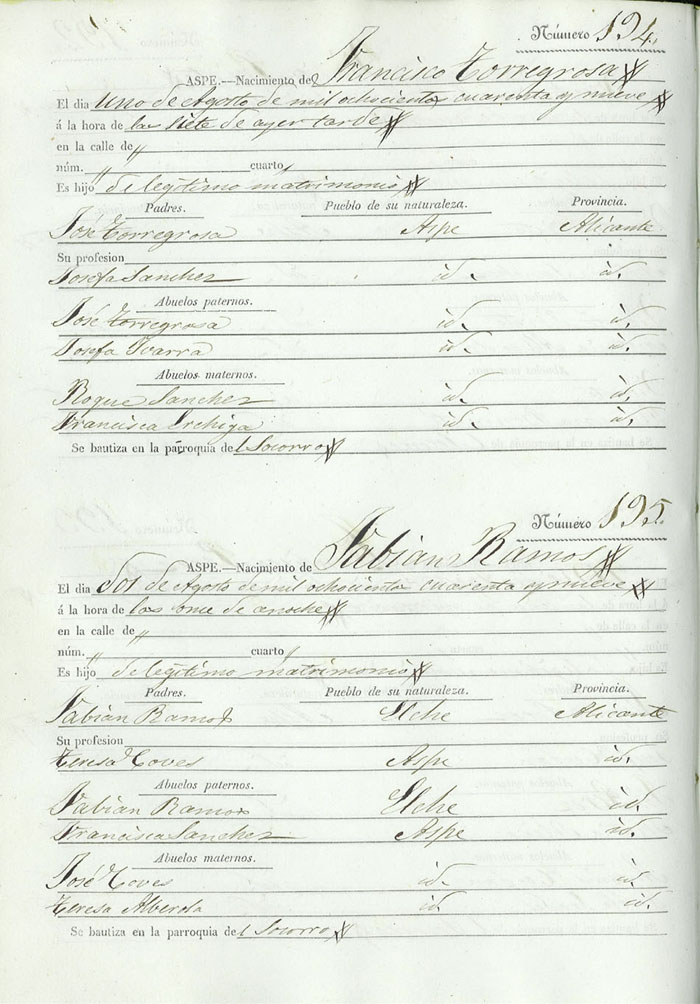 Número 194.
ASPE.—Nacimiento de Francisco Torregrosa
El dia uno de Agosto de mil ochocientos cuarenta y nueve
á la hora de las siete de ayer tarde
en la calle de "
núm. " cuarto "
Es hijo de legitimo matrimonio
Padres. Pueblo de su naturaleza. Provincia.
José Torregrosa Aspe Alicante
Su profesion
Josefa Sanchez id. id.
Abuelos paternos.
José Torregrosa id. id.
Josefa Ivarra id. id.
Abuelos maternos.
Roque Sanchez id. id.
Francisca Irchiga id. id.
Se bautiza en la parroquia del Socorro
Número 195.
ASPE.—Nacimiento de Fabian Ramos
El dia dos de Agosto de mil ochocientos cuarenta y nueve
á la hora de las once de anoche
en la calle de "
núm. " cuarto "
Es hijo de legitimo matrimonio
Padres. Pueblo de su naturaleza. Provincia.
Fabian Ramos Elche Alicante
Su profesion
Teresa Coves Aspe id.
Abuelos paternos.
Fabian Ramos Elche id.
Francisca Sanchez Aspe id.
Abuelos maternos.
José Coves id. id.
Teresa Alberola id. id.
Se bautiza en la parroquia del Socorro